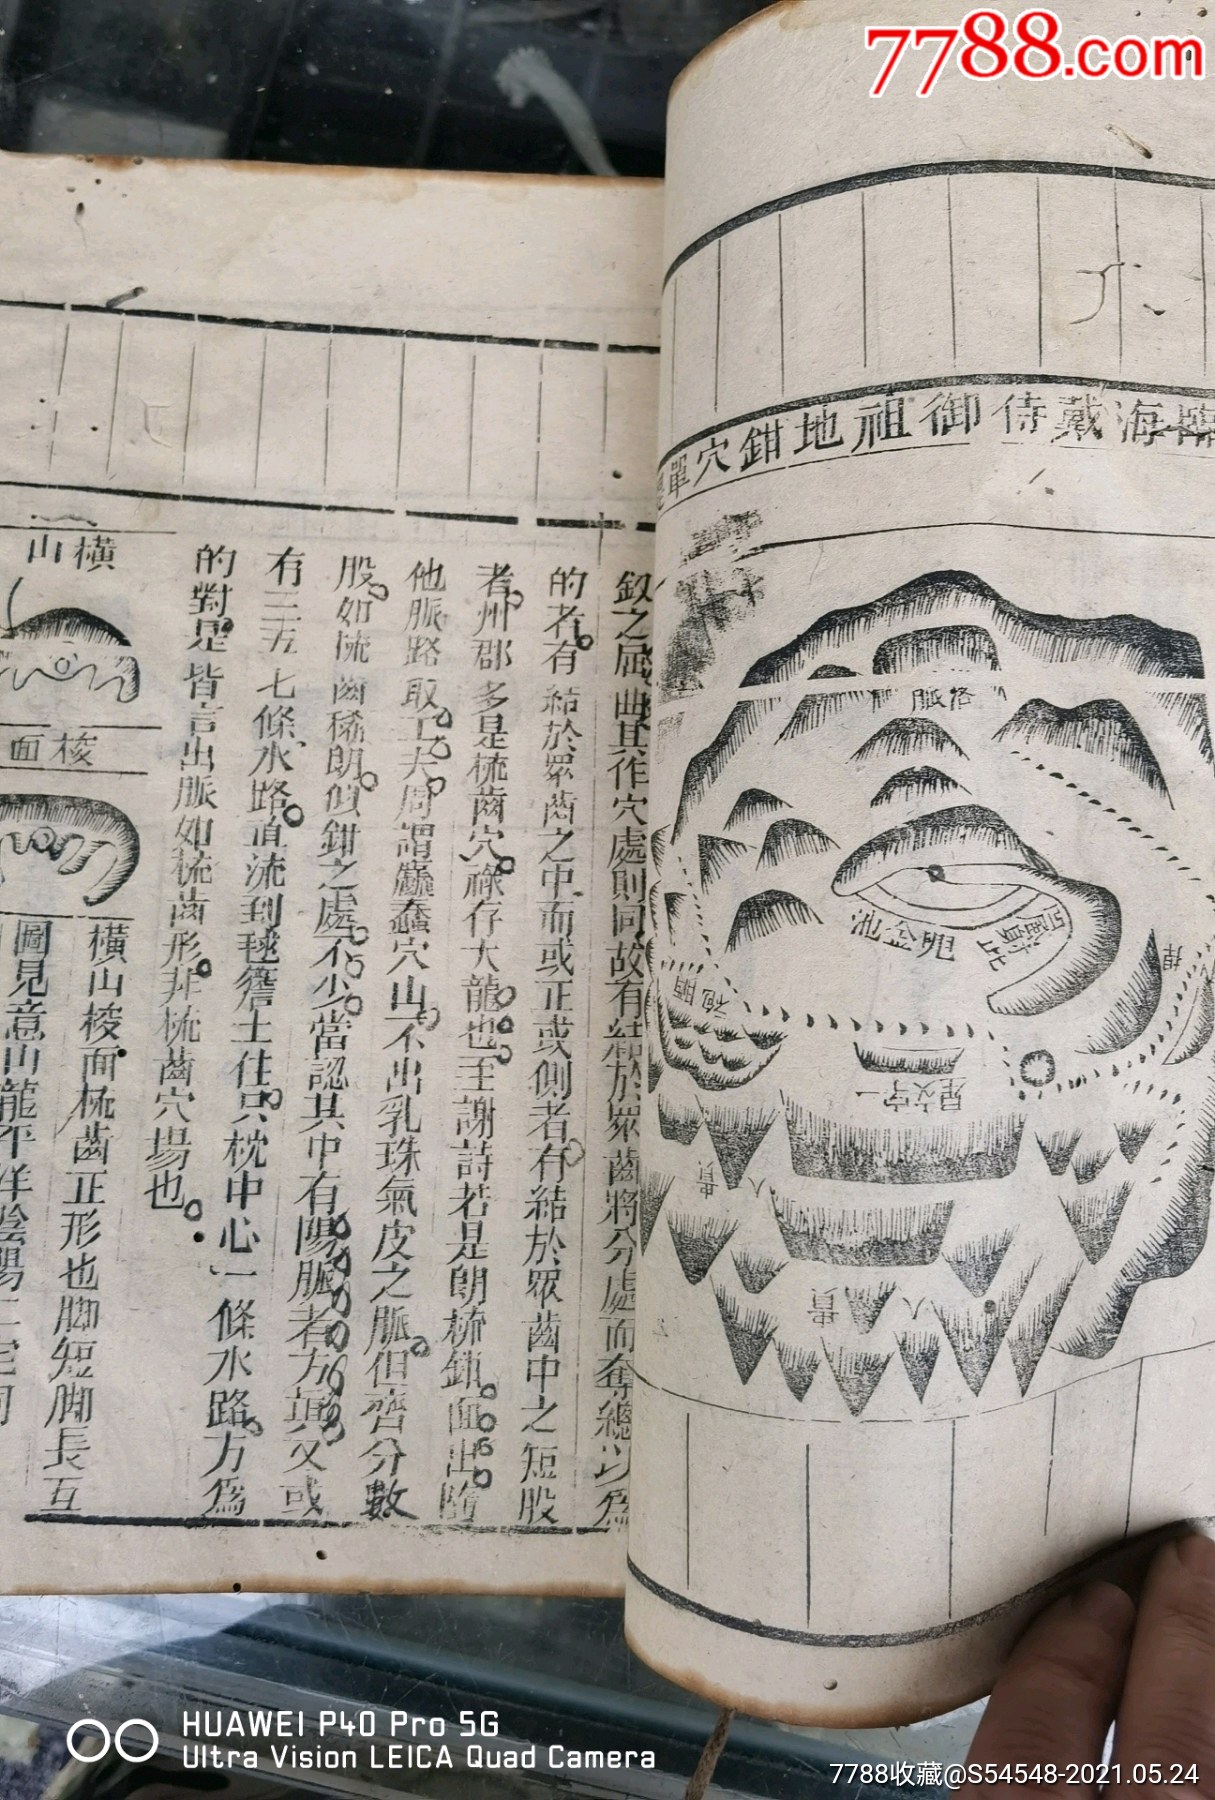 7788.com
臨海戴侍御祖地鉗穴單
脈落
池金睍
星文字一
貴人
貴人
釵之屈曲其作穴處則同故有結於眾齒將分處而奪總以為
的者有結於眾齒之中而或正或側者有結於眾齒中之短股
者州郡多是梳齒穴祿存大龍也至謝詩若是朗梳鉗面出隨
他脈路取工夫周謂蠶穴山不出乳珠氣皮之脈但齊分數
股如梳齒稀朗傾鉗之處不少當認其中有陽脈者方真又或
有三五七條水路直流到毬簷土住只枕中心一條水路方為
的對是皆言出脈如梳齒形非梳齒穴場也
橫山
梭面
橫山梭面梳齒正形也腳短腳長互
圖見意山龍平洋陰陽二宅同
HUAWEI P40 Pro 5G
Ultra Vision LEICA Quad Camera
7788收藏@S54548-2021.05.24